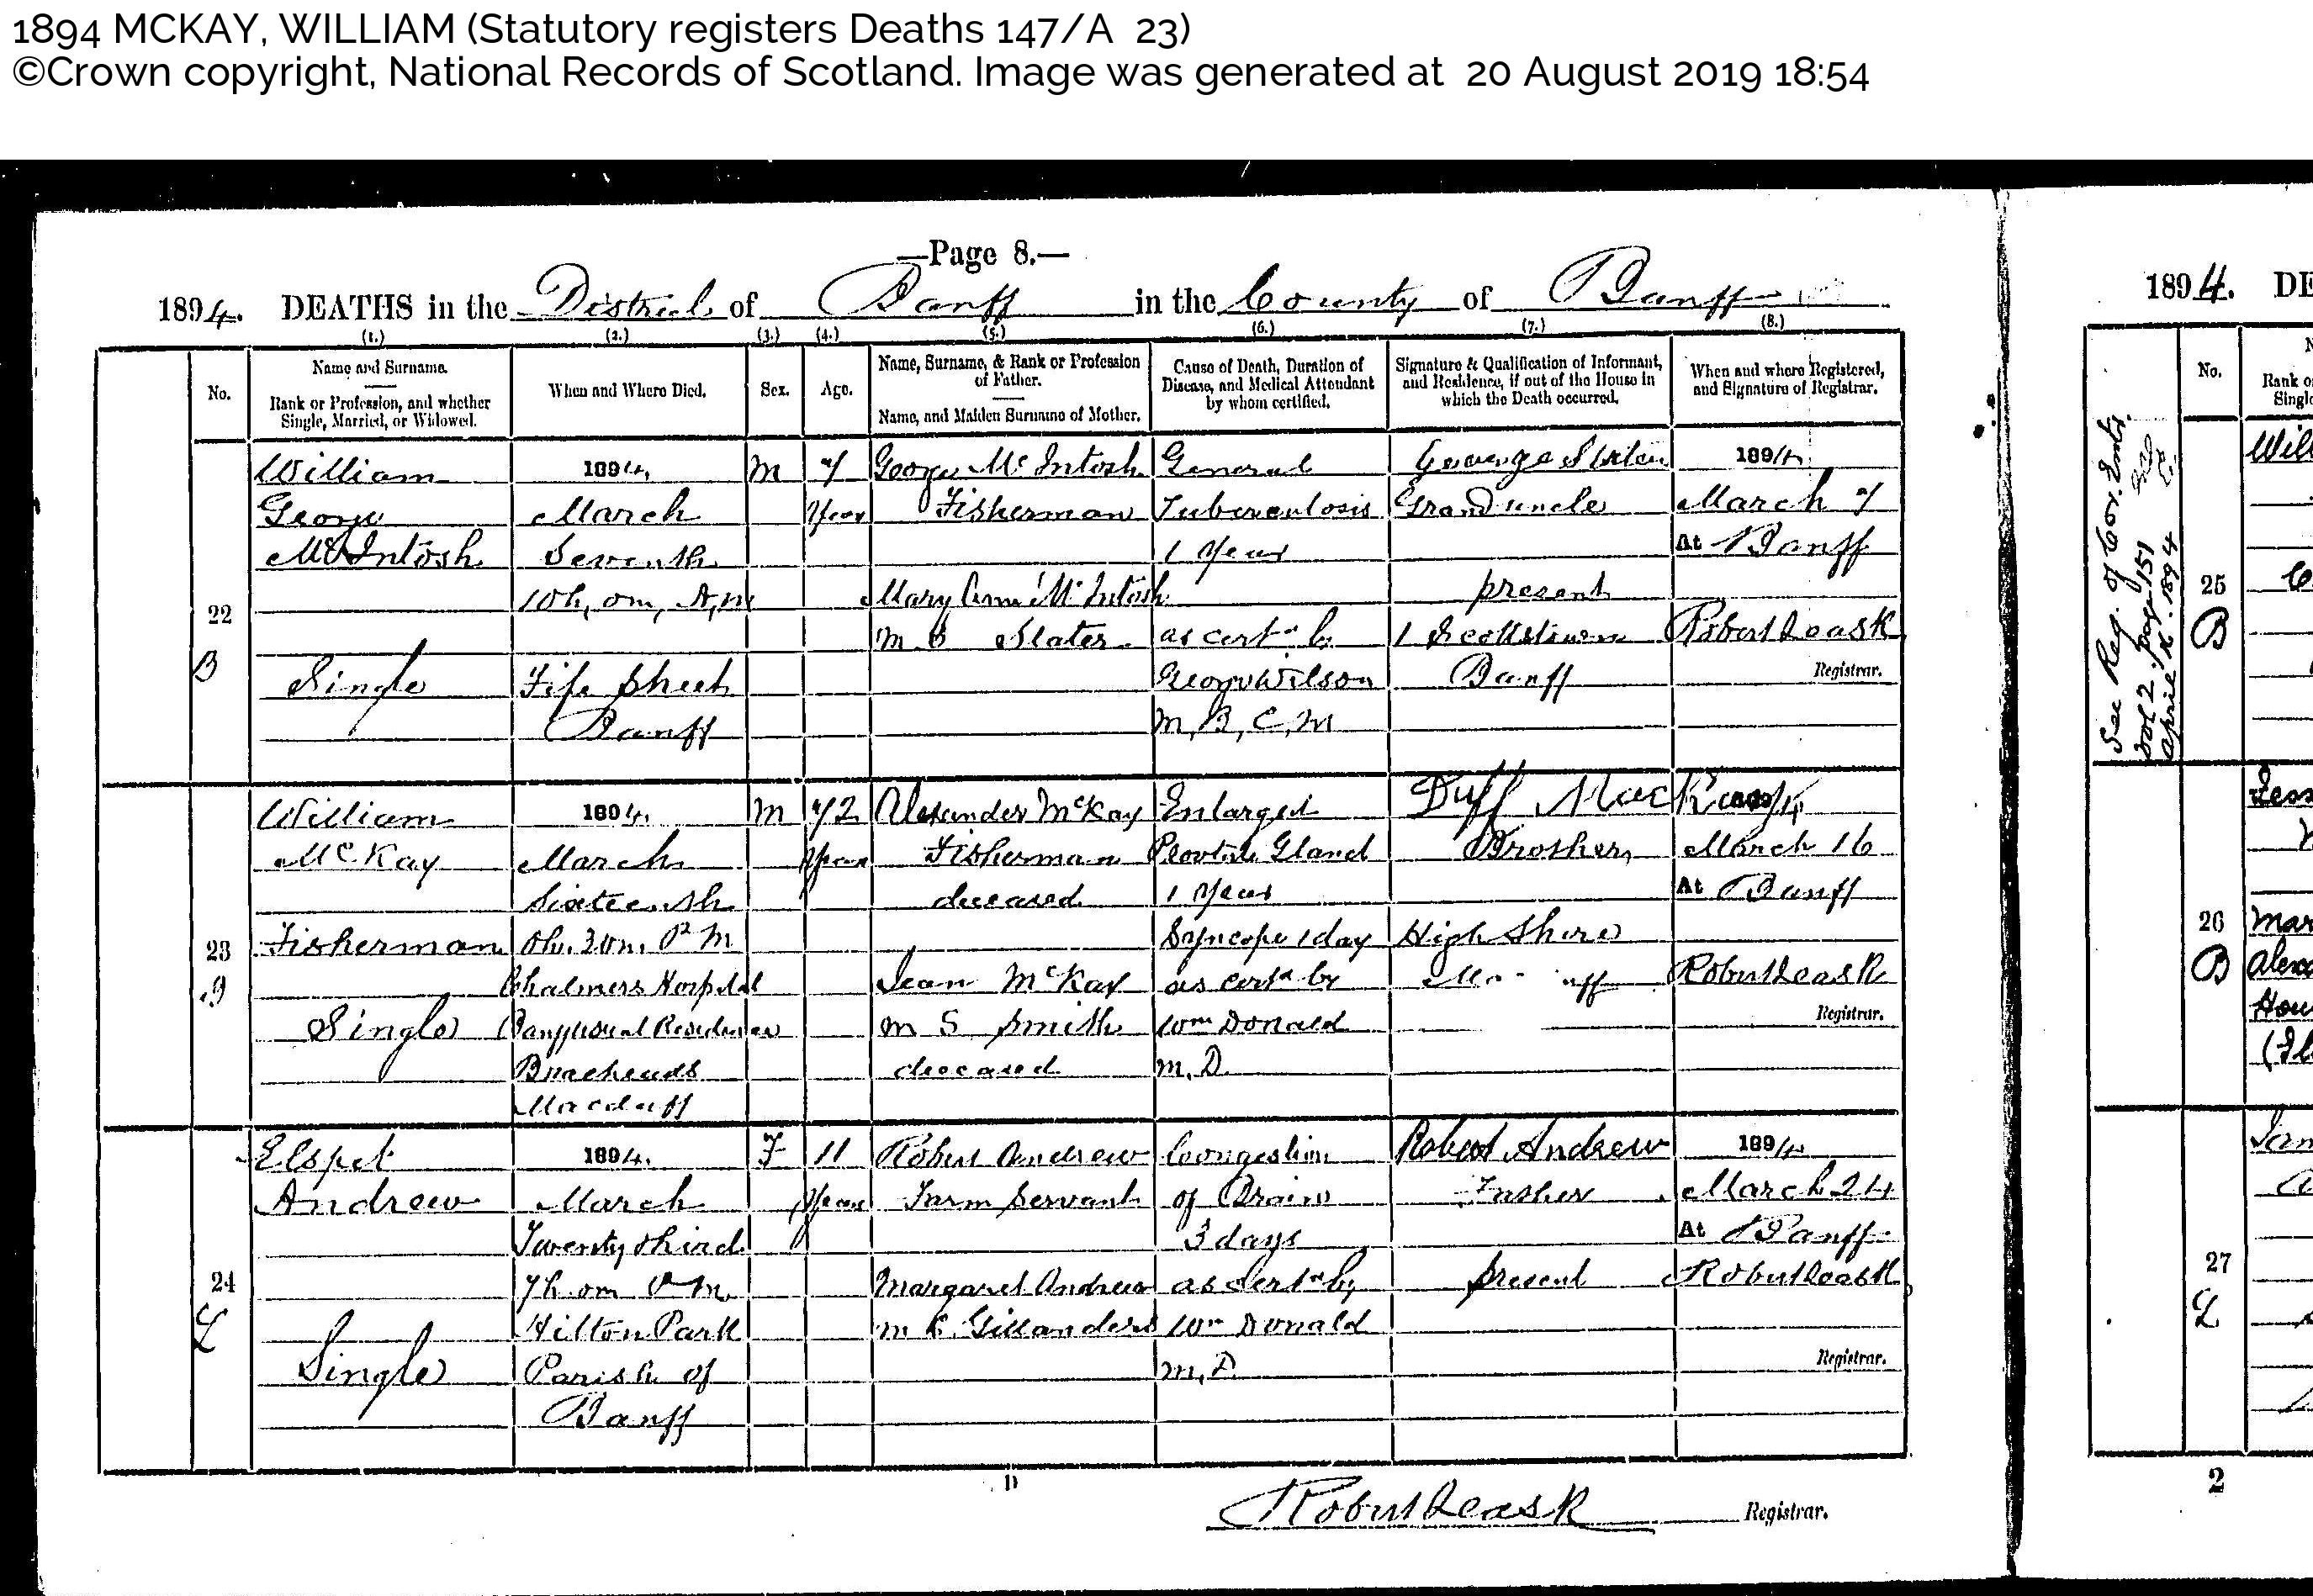 1894 MCKAY, WILLIAM (Statutory registers Deaths 147/A 23)
©Crown copyright, National Records of Scotland. Image was generated at 20 August 2019 18:54
—Page 8.—
1894. DEATHS in the District of Banff in the County of Banff
(1.) (2.) (3.) (4.) (5.) (6.) (7.) (8.)
No.
Name and Surname.
Rank or Profession, and whether
Single, Married, or Widowed.
When and Where Died.
Sex.
Age.
Name, Surname, & Rank or Profession
of Father.
Name, and Maiden Surname of Mother.
Cause of Death, Duration of
Disease, and Medical Attendant
by whom certified.
Signature & Qualification of Informant,
and Residence, if out of the House in
which the Death occurred.
When and where Registered,
and Signature of Registrar.
22
B
William
George
McIntosh
Single
1894.
March
Seventh
10h, 0m, A,M
Fife Street
Banff
M
7
Years
George McIntosh
Fisherman
Mary Ann McIntosh
M S Slater
General
Tuberculosis
1 Year
as certd by
George Wilson
M, B, C, M
George Slater
Grand uncle
present
1 Scotstown
Banff
1894.
March 7
At Banff
Robert Leask
Registrar.
23
William
McKay
Fisherman
Single
1894.
March
Sixteenth
0h. 30m. P M
Chalmers Hospital
Banff usual Residence
Braeheads
Macduff
M
72
Years
Alexander McKay
Fisherman
deceased
Jean McKay
M S Smith
deceased
Enlarged
Gland
1 Year
Syncope 1 day
as certd by
Wm Donald
M. D.
Duff MacKay
Brother,
High Shore
1894.
March 16
At Banff
Robert Leask
Registrar.
24
L
Elspet
Andrew
Single
1894.
March
Twenty third
7h 0m P M.
Hilton Park
Parish of
Banff
F
11
Years
Robert Andrew
Farm Servant
Margaret Andrew
M S Gillanders
Congestion
of Brain
3 days
as Certd by
Wm Donald
M, D.
Robert Andrew
Father
present
1894.
March 24
At Banff
Robert Leask
Registrar.
Robert Leask Registrar.
1894. DE
No.
Rank o
Single
See Reg. of Cor. Ents
Vol 2. page 151
April 16. 1894
25
B
Will
26
B
Jess
Mar
Hou
27
L
2